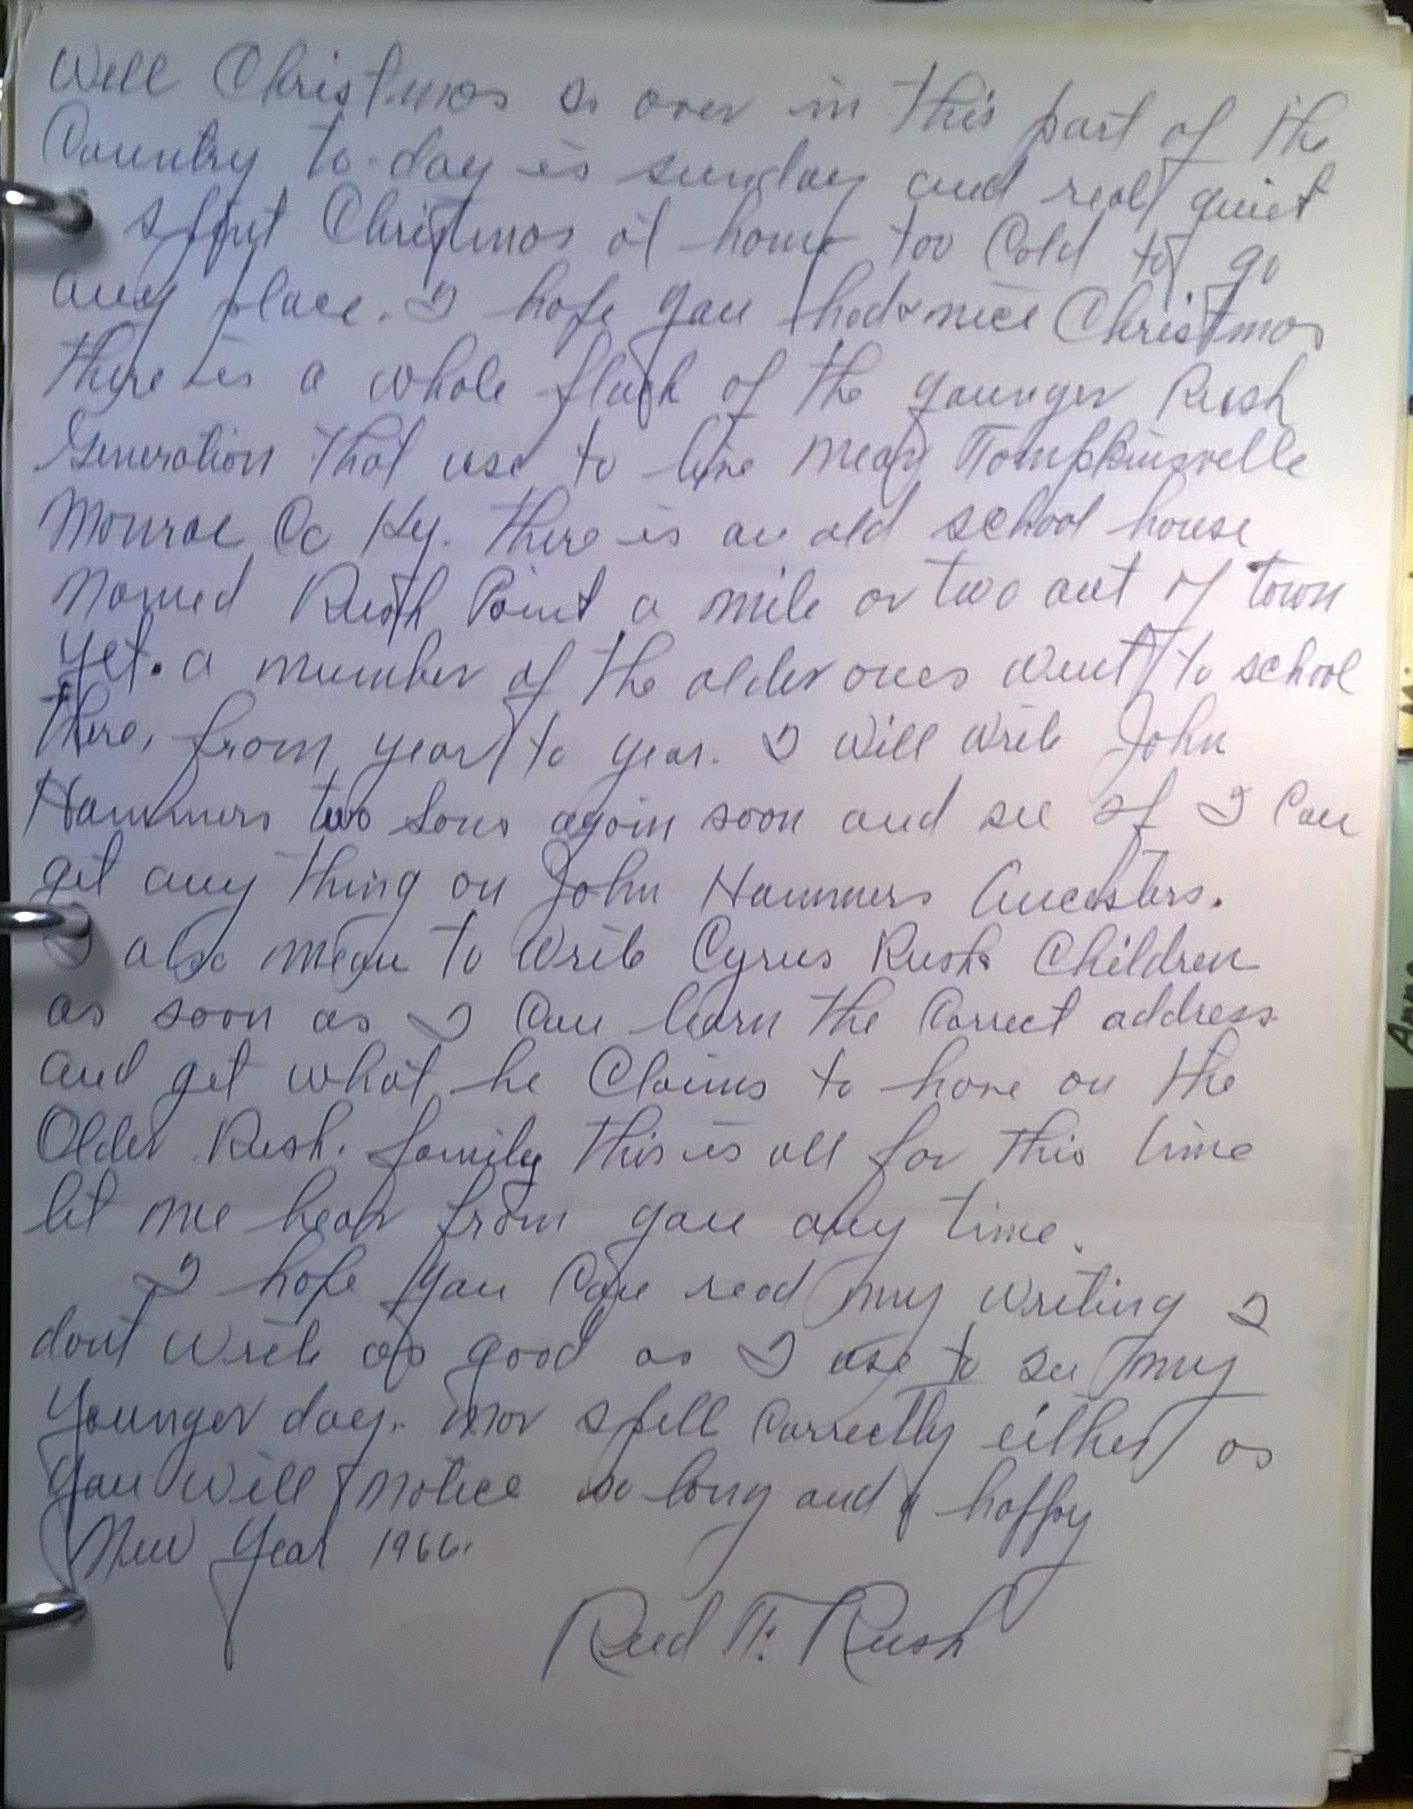 Well Christmas is over in this part of the
Country to-day is sunday and real quiet
spent Christmas at home too Cold to go
any place. I hope you had a nice Christmas
there is a whole flock of the younger Rush
Generation that use to live near Tompkinsville
Monroe Co Ky. there is an old school house
Named Rush Point a mile or two out of town
yet. a number of the older ones went to school
there, from year to year. I will write John
Hammers two sons again soon and see if I Can
get any thing on John Hammers Ancestors.
I also mean to write Cyrus Rush Children
as soon as I Can learn the Correct address
and get what he Claims to have on the
Older Rush. family this is all for this time
let me hear from you any time.
I hope you Can read my writing I
dont write as good as I use to in my
younger day. nor spell Correctly either as
you will notice so long and a happy
New Year 1966.
Reed T. Rush